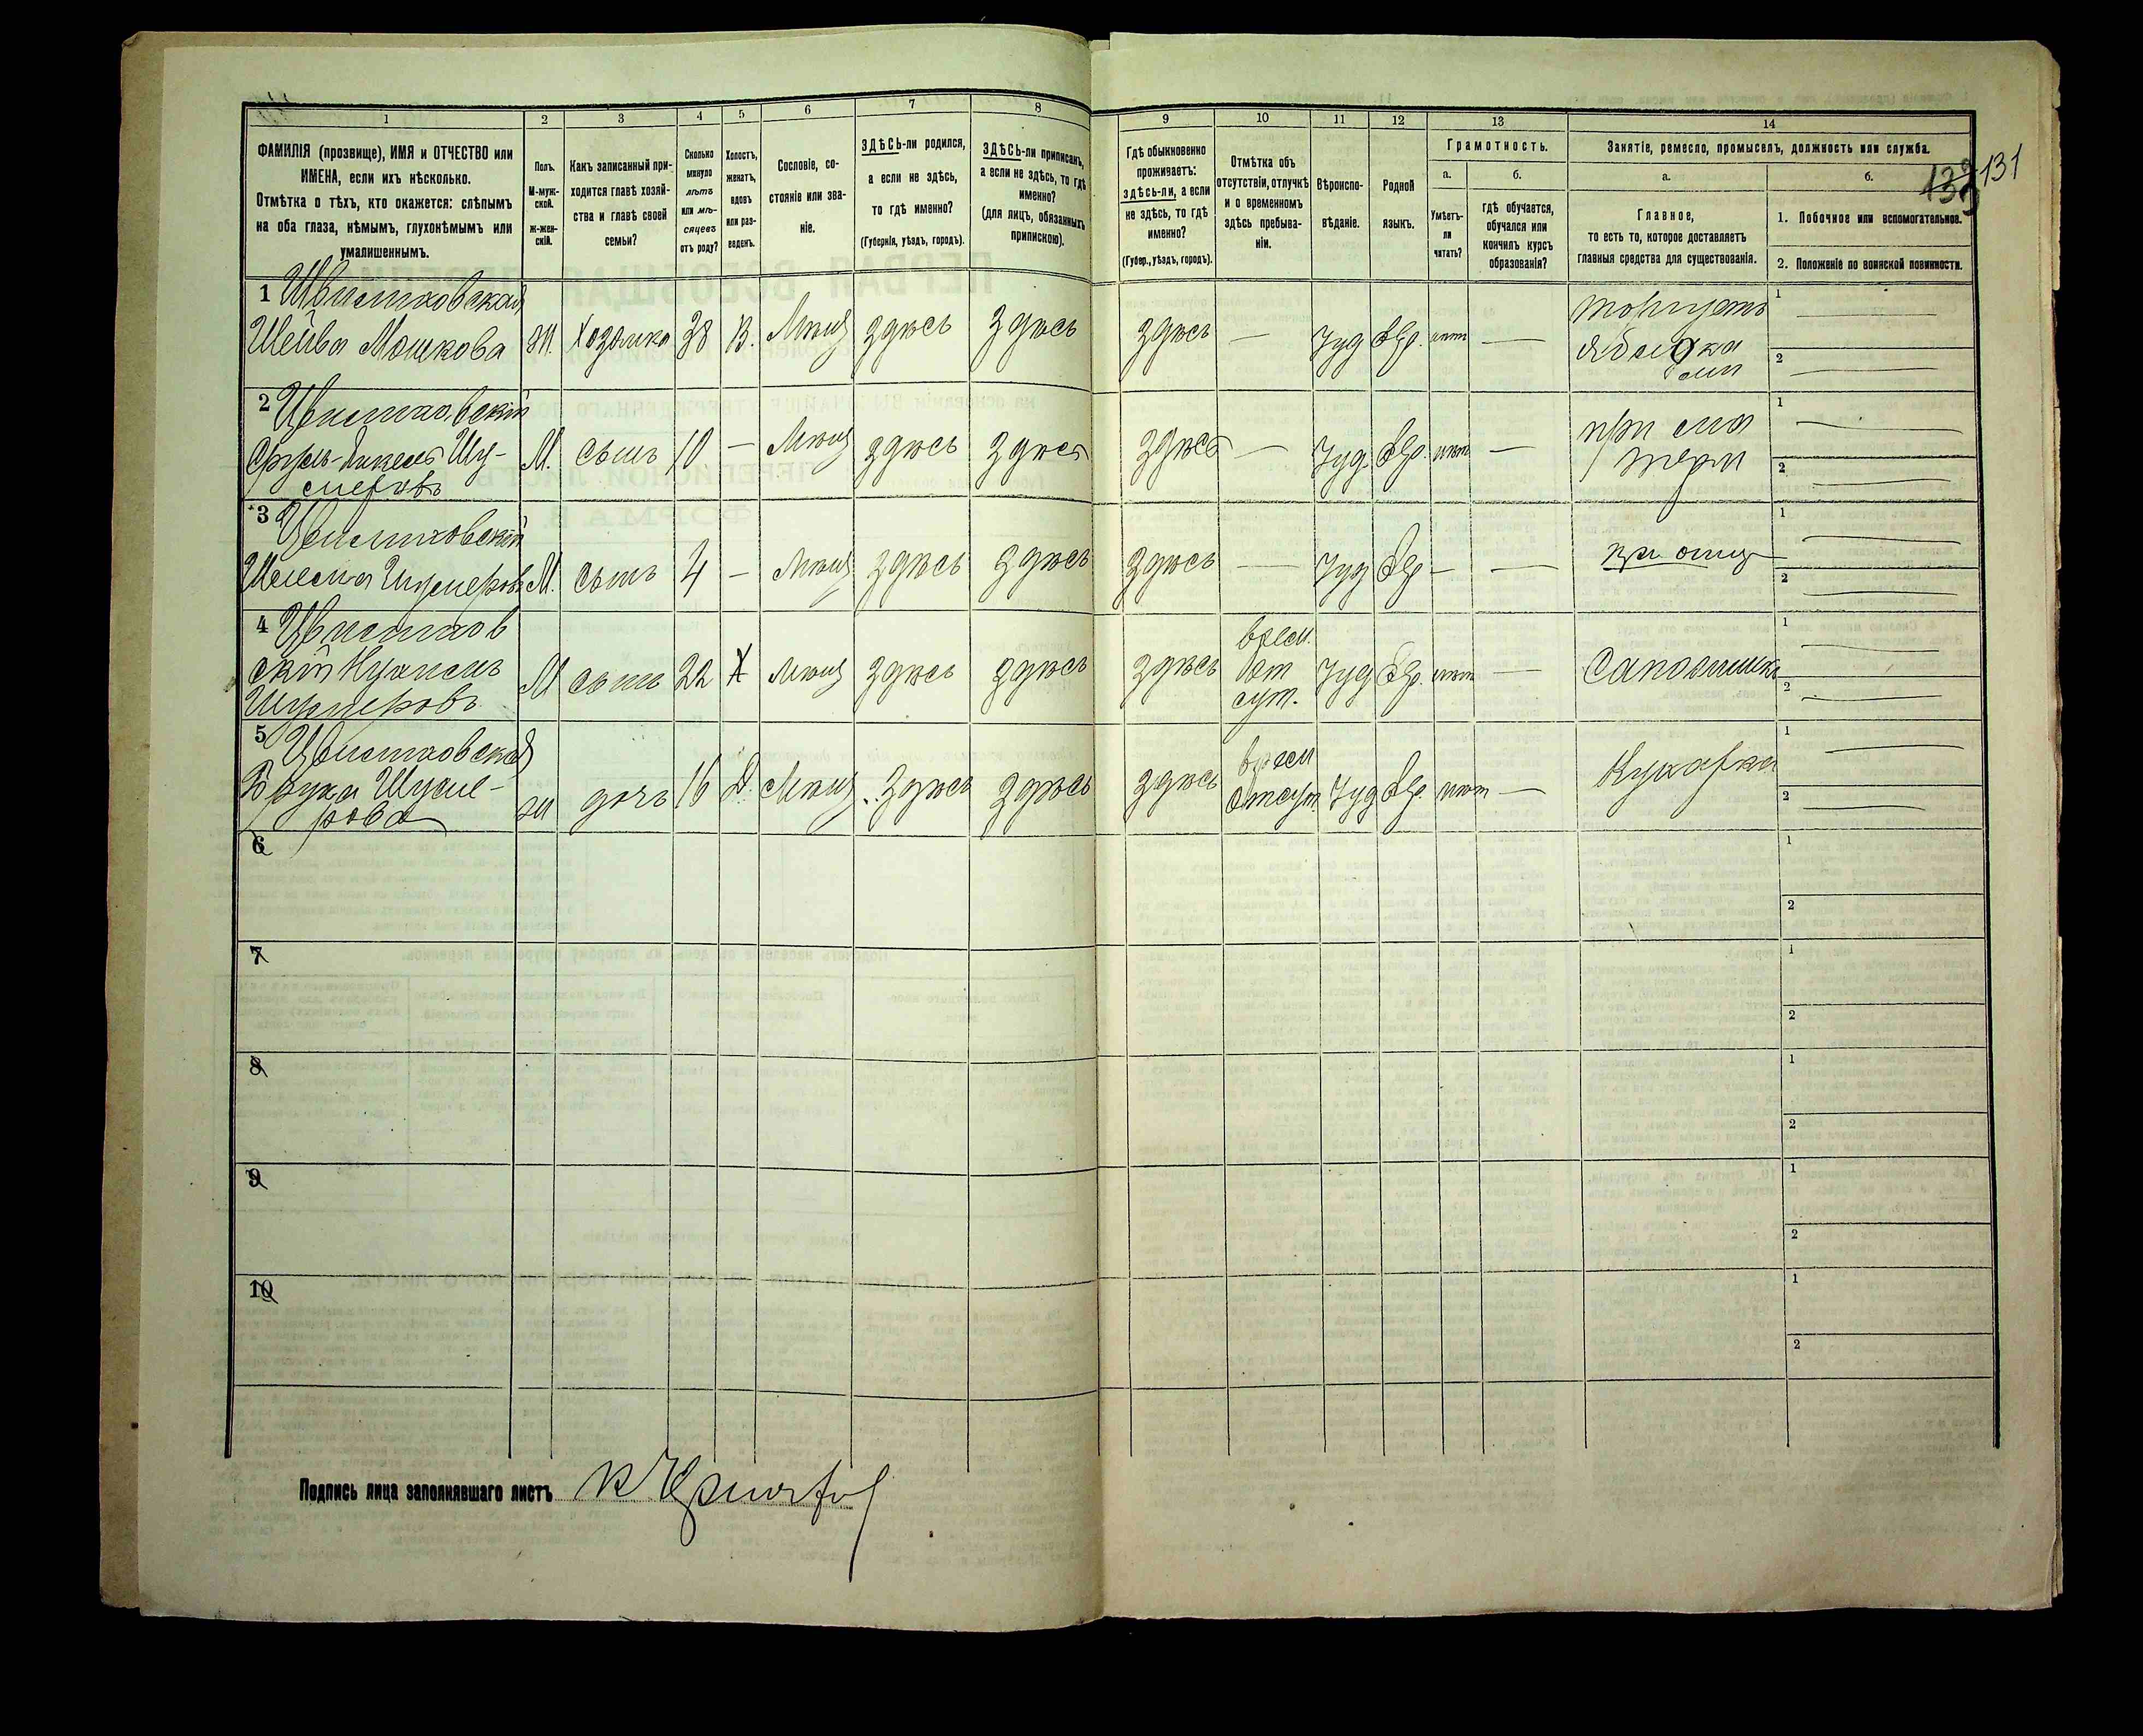 1 2 3 4 5 6 7 8 9 10 11 12 13 14
ФАМИЛІЯ (прозвище), ИМЯ и ОТЧЕСТВО или
ИМЕНА, если ихъ нѣсколько.
Отмѣтка о тѣхъ, кто окажется: слѣпымъ
на оба глаза, нѣмымъ, глухонѣмымъ или
умалишеннымъ.
Полъ.
М-муж-
ской.
ж-жен-
скій.
Какъ записанный при-
ходится главѣ хозяй-
ства и главѣ своей
семьи?
Сколько
минуло
лѣтъ
или мѣ-
сяцевъ
отъ роду?
Холостъ,
женатъ,
вдовъ
или раз-
веденъ.
Сословіе, со-
стояніе или зва-
ніе.
ЗДѢСЬ-ли родился,
а если не здѣсь,
то гдѣ именно?
(Губернія, уѣздъ, городъ).
ЗДѢСЬ-ли приписанъ,
а если не здѣсь, то гдѣ
именно?
(для лицъ, обязанныхъ
припискою).
Гдѣ обыкновенно
проживаетъ:
здѣсь-ли, а если
не здѣсь, то гдѣ
именно?
(Губер., уѣздъ, городъ).
Отмѣтка объ
отсутствіи, отлучкѣ
и о временномъ
здѣсь пребыва-
ніи.
Вѣроиспо-
вѣданіе.
Родной
языкъ.
Грамотность.
а.
Умѣетъ-
ли
читать?
б.
гдѣ обучается,
обучался или
кончилъ курсъ
образованія?
Занятіе, ремесло, промыселъ, должность или служба.
а.
Главное,
то есть то, которое доставляетъ
главныя средства для существованія.
б.
1. Побочное или вспомогательное.
2. Положеніе по воинской повинности.
131
1 Цвитковская
Шейва Мошкова ж. Хозяйка 38 В. Мѣщ здѣсь здѣсь здѣсь — Іуд Евр. нѣт — торгуетъ
яблока
ми
1
2
2 Цвитковскій
Сруль- М. сынъ 10 — Мѣщ здѣсь здѣсь здѣсь — Іуд. Евр. нѣт — при ма
тери
1
2
3 Цвитковскій
М. сынъ 4 — Мѣщ здѣсь здѣсь здѣсь — Іуд Евр — —
1
2
4 Цвитков
скій М сынъ 22 Х Мѣщ здѣсь здѣсь здѣсь врем.
от
сут. Іуд Евр. нѣт — Сапожникъ
1
2
5 Цвитковская
ж дочь 16 Д. Мѣщ. здѣсь здѣсь здѣсь врем
отсут. Іуд Евр. нѣт — Кухарка
1
2
6
1
2
7
1
2
8
1
2
9
1
2
10
1
2
Подпись лица заполнявшаго листъ